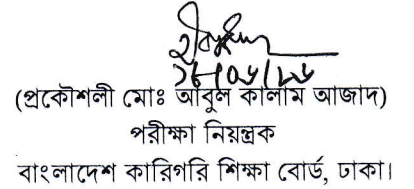 (প্রকৌশলী মোঃ আবুল কালাম আজাদ)
পরীক্ষা নিয়ন্ত্রক
বাংলাদেশ কারিগরি শিক্ষা বোর্ড, ঢাকা।